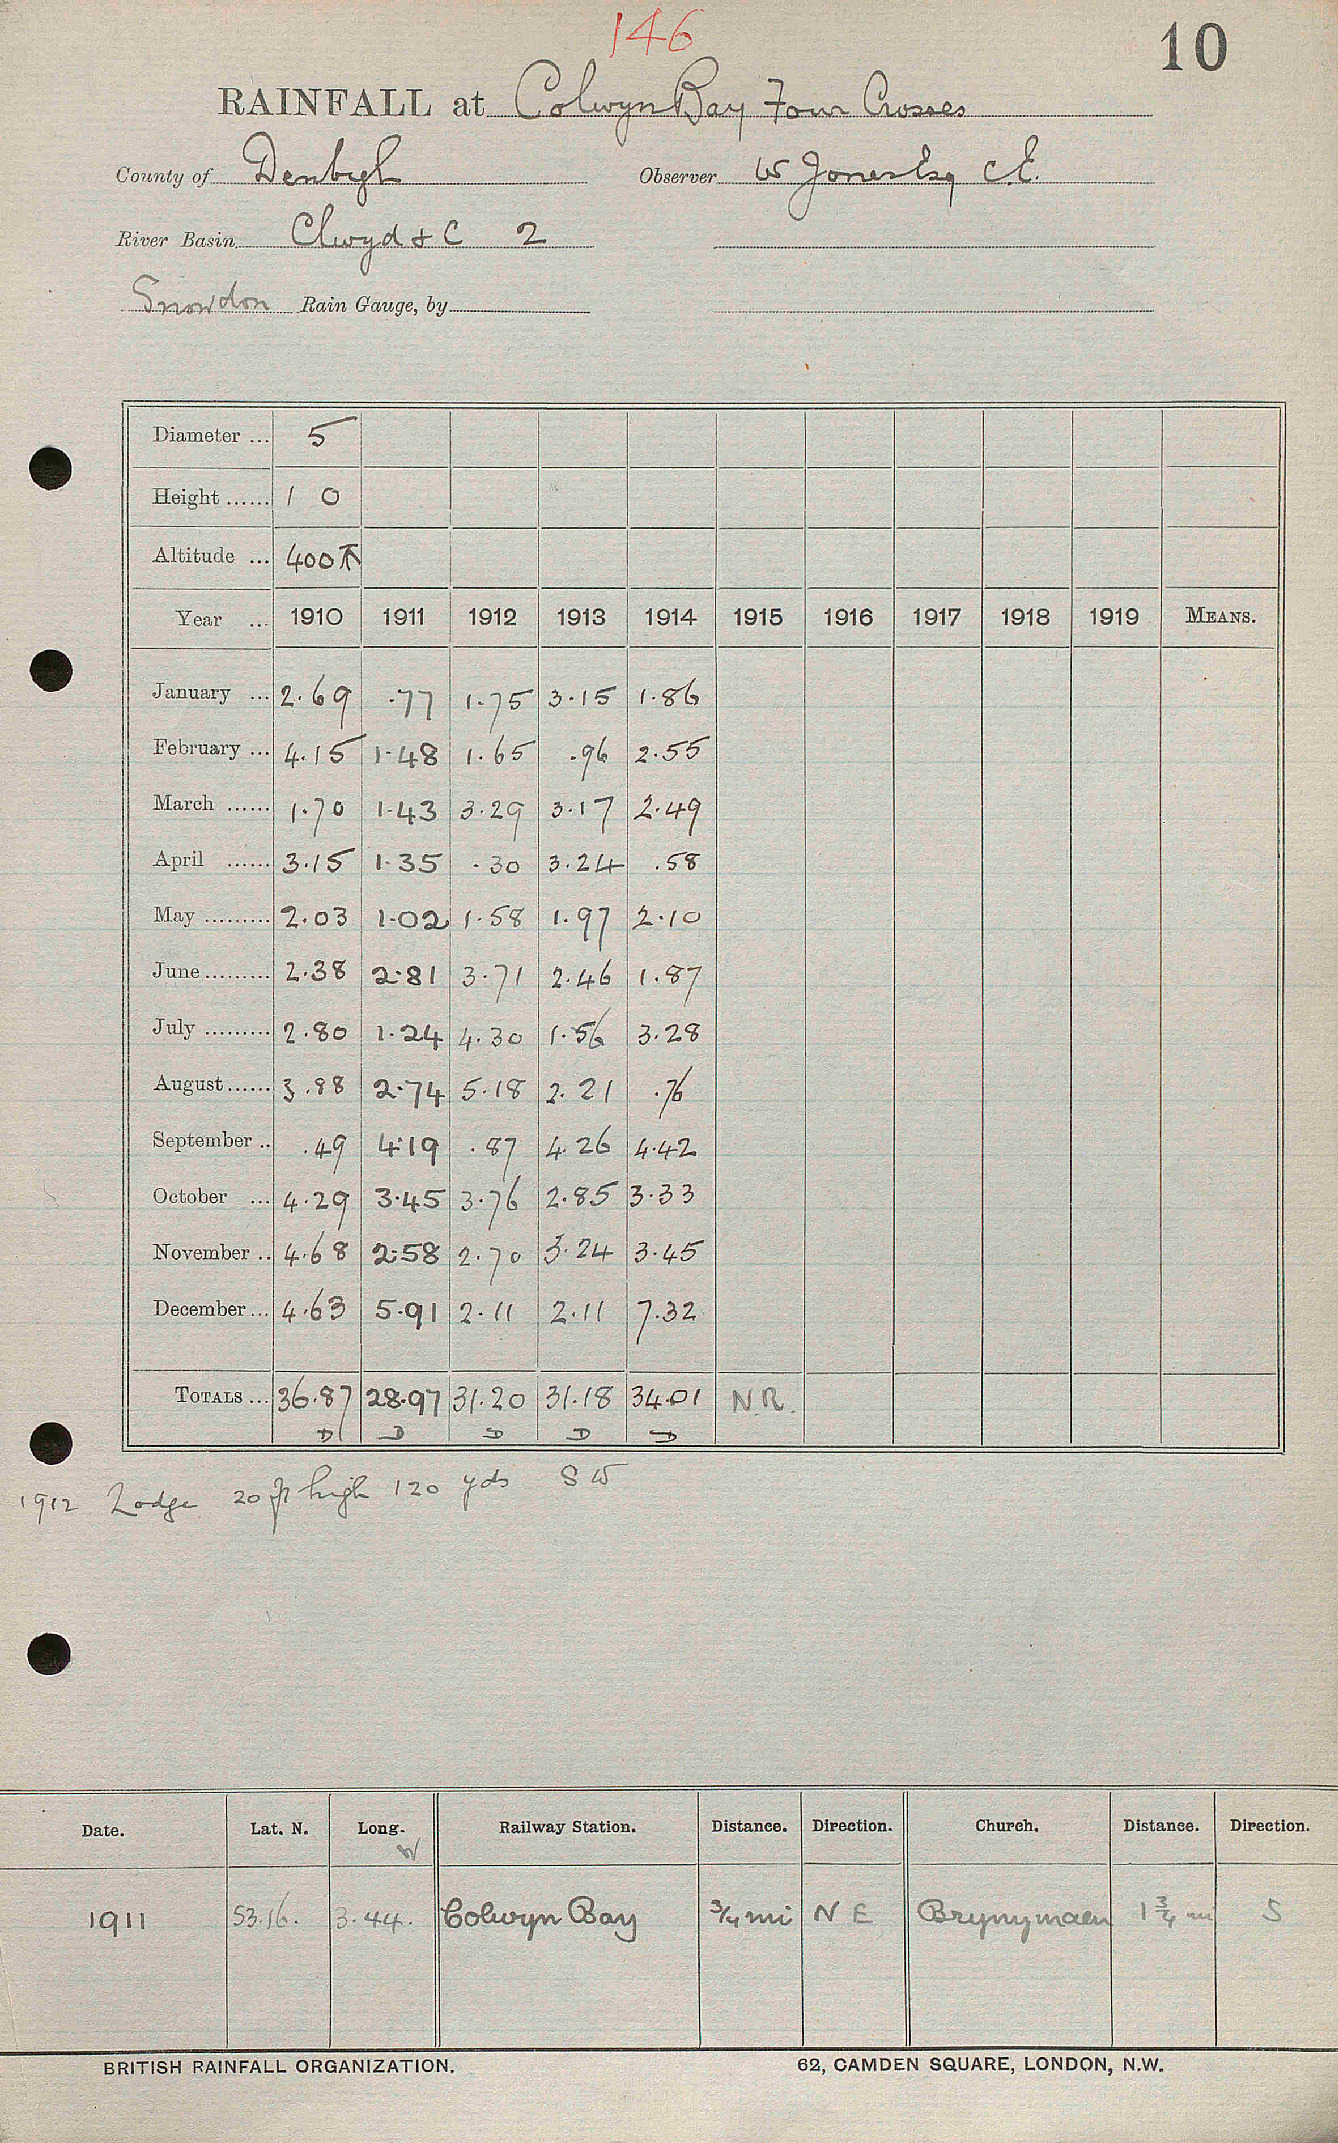 146
10
RAINFALL at Colwyn Bay Four Crosses
County of Denbigh Observer W Jones Esq C.E.
River Basin Clwyd & C 2
Snowdon Rain Gauge, by
Diameter ... 5
Height ...... 1 0
Altitude ... 400
Year ... 1910 1911 1912 1913 1914 1915 1916 1917 1918 1919 MEANS.
January ... 2.69 .77 1.75 3.15 1.86
February ... 4.15 1.48 1.65 .96 2.55
March ...... 1.70 1.43 3.29 3.17 2.49
April ...... 3.15 1.35 .30 3.24 .58
May ......... 2.03 1.02 1.58 1.97 2.10
June ......... 2.38 2.81 3.71 2.46 1.87
July ......... 2.80 1.24 4.30 1.56 3.28
August ...... 3.88 2.74 5.18 2.21 .76
September .. .49 4.19 .87 4.26 4.42
October ... 4.29 3.45 3.76 2.85 3.33
November .. 4.68 2.58 2.70 3.24 3.45
December ... 4.63 5.91 2.11 2.11 7.32
TOTALS ... 36.87 28.97 31.20 31.18 34.01 N.R.
D D D D D
1912 Lodge 20 ft high 120 yds SW
Date. Lat. N. Long. W Railway Station. Distance. Direction. Church. Distance. Direction.
1911 53.16. 3.44. Colwyn Bay 3/4 mi N E Brynymaen 1 3/4 mi S
BRITISH RAINFALL ORGANIZATION. 62, CAMDEN SQUARE, LONDON, N.W.